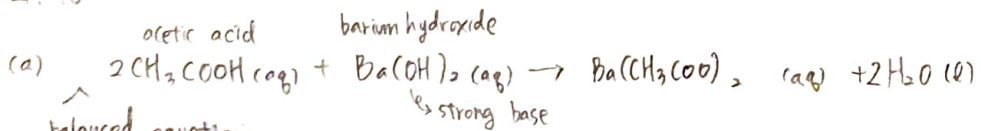 acetic acid barium hydroxide
(a) 2CH₃COOH(aq) + Ba(OH)₂(aq) → Ba(CH₃COO)₂ (aq) + 2H₂O(l)
↳ strong base
balanced